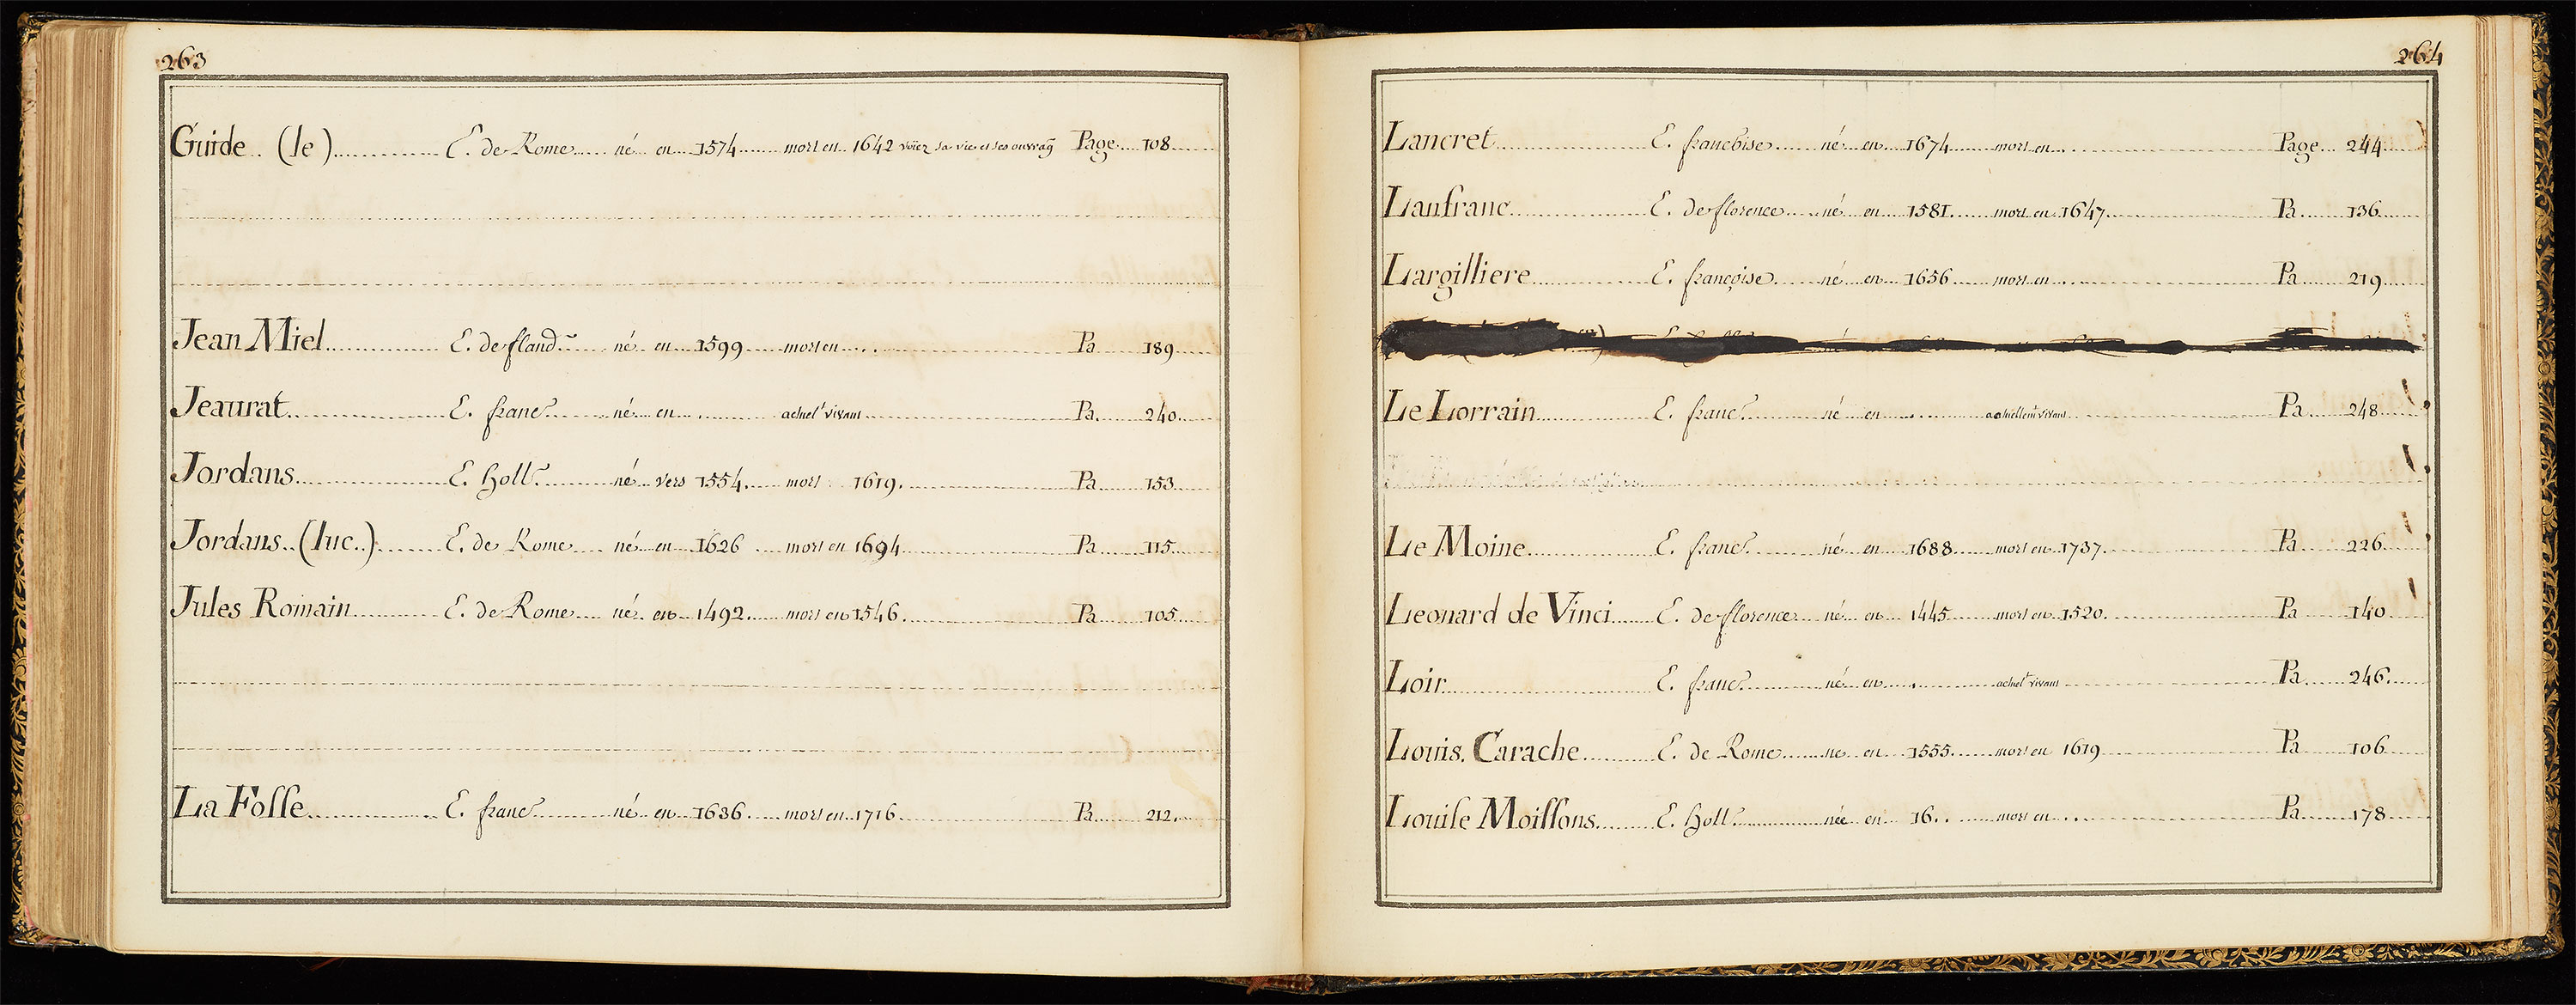 263
Guide (le) E. de Rome né en 1574 mort en 1642 voiez sa vie et ses ouvrag Page 108
Jean Miel E. de fland né en 1599 mort en Pa 189
Jeaurat E. franc né en actuel.t vivant Pa. 240
Jordans E. holl. né vers 1554. mort 1619. Pa 153
Jordans (luc.) E. de Rome né en 1626 mort en 1694 Pa 115
Jules Romain E. de Rome né en 1492. mort en 1546. Pa 105
La Fosse E. franc né en 1636 mort en 1716 Pa 212
264
Lancret E. francoise né en 1674 mort en Page 244
Lanfranc E. de florence né en 1581. mort en 1647. Pa 136
Largilliere E. françoise né en 1656 mort en Pa 219
Le Lorrain E. franc né en actuellem.t vivant Pa 248
Le Moine E. franc né en 1688 mort en 1737. Pa 226
Leonard de Vinci E. de florence né en 1445 mort en 1520. Pa 140
Loir E. franc né en actuel.t vivant Pa 246.
Louis. Carache E. de Rome ne en 1555 mort en 1619 Pa 106
Louise Moissons E. holl. née en 16.. mort en Pa 178